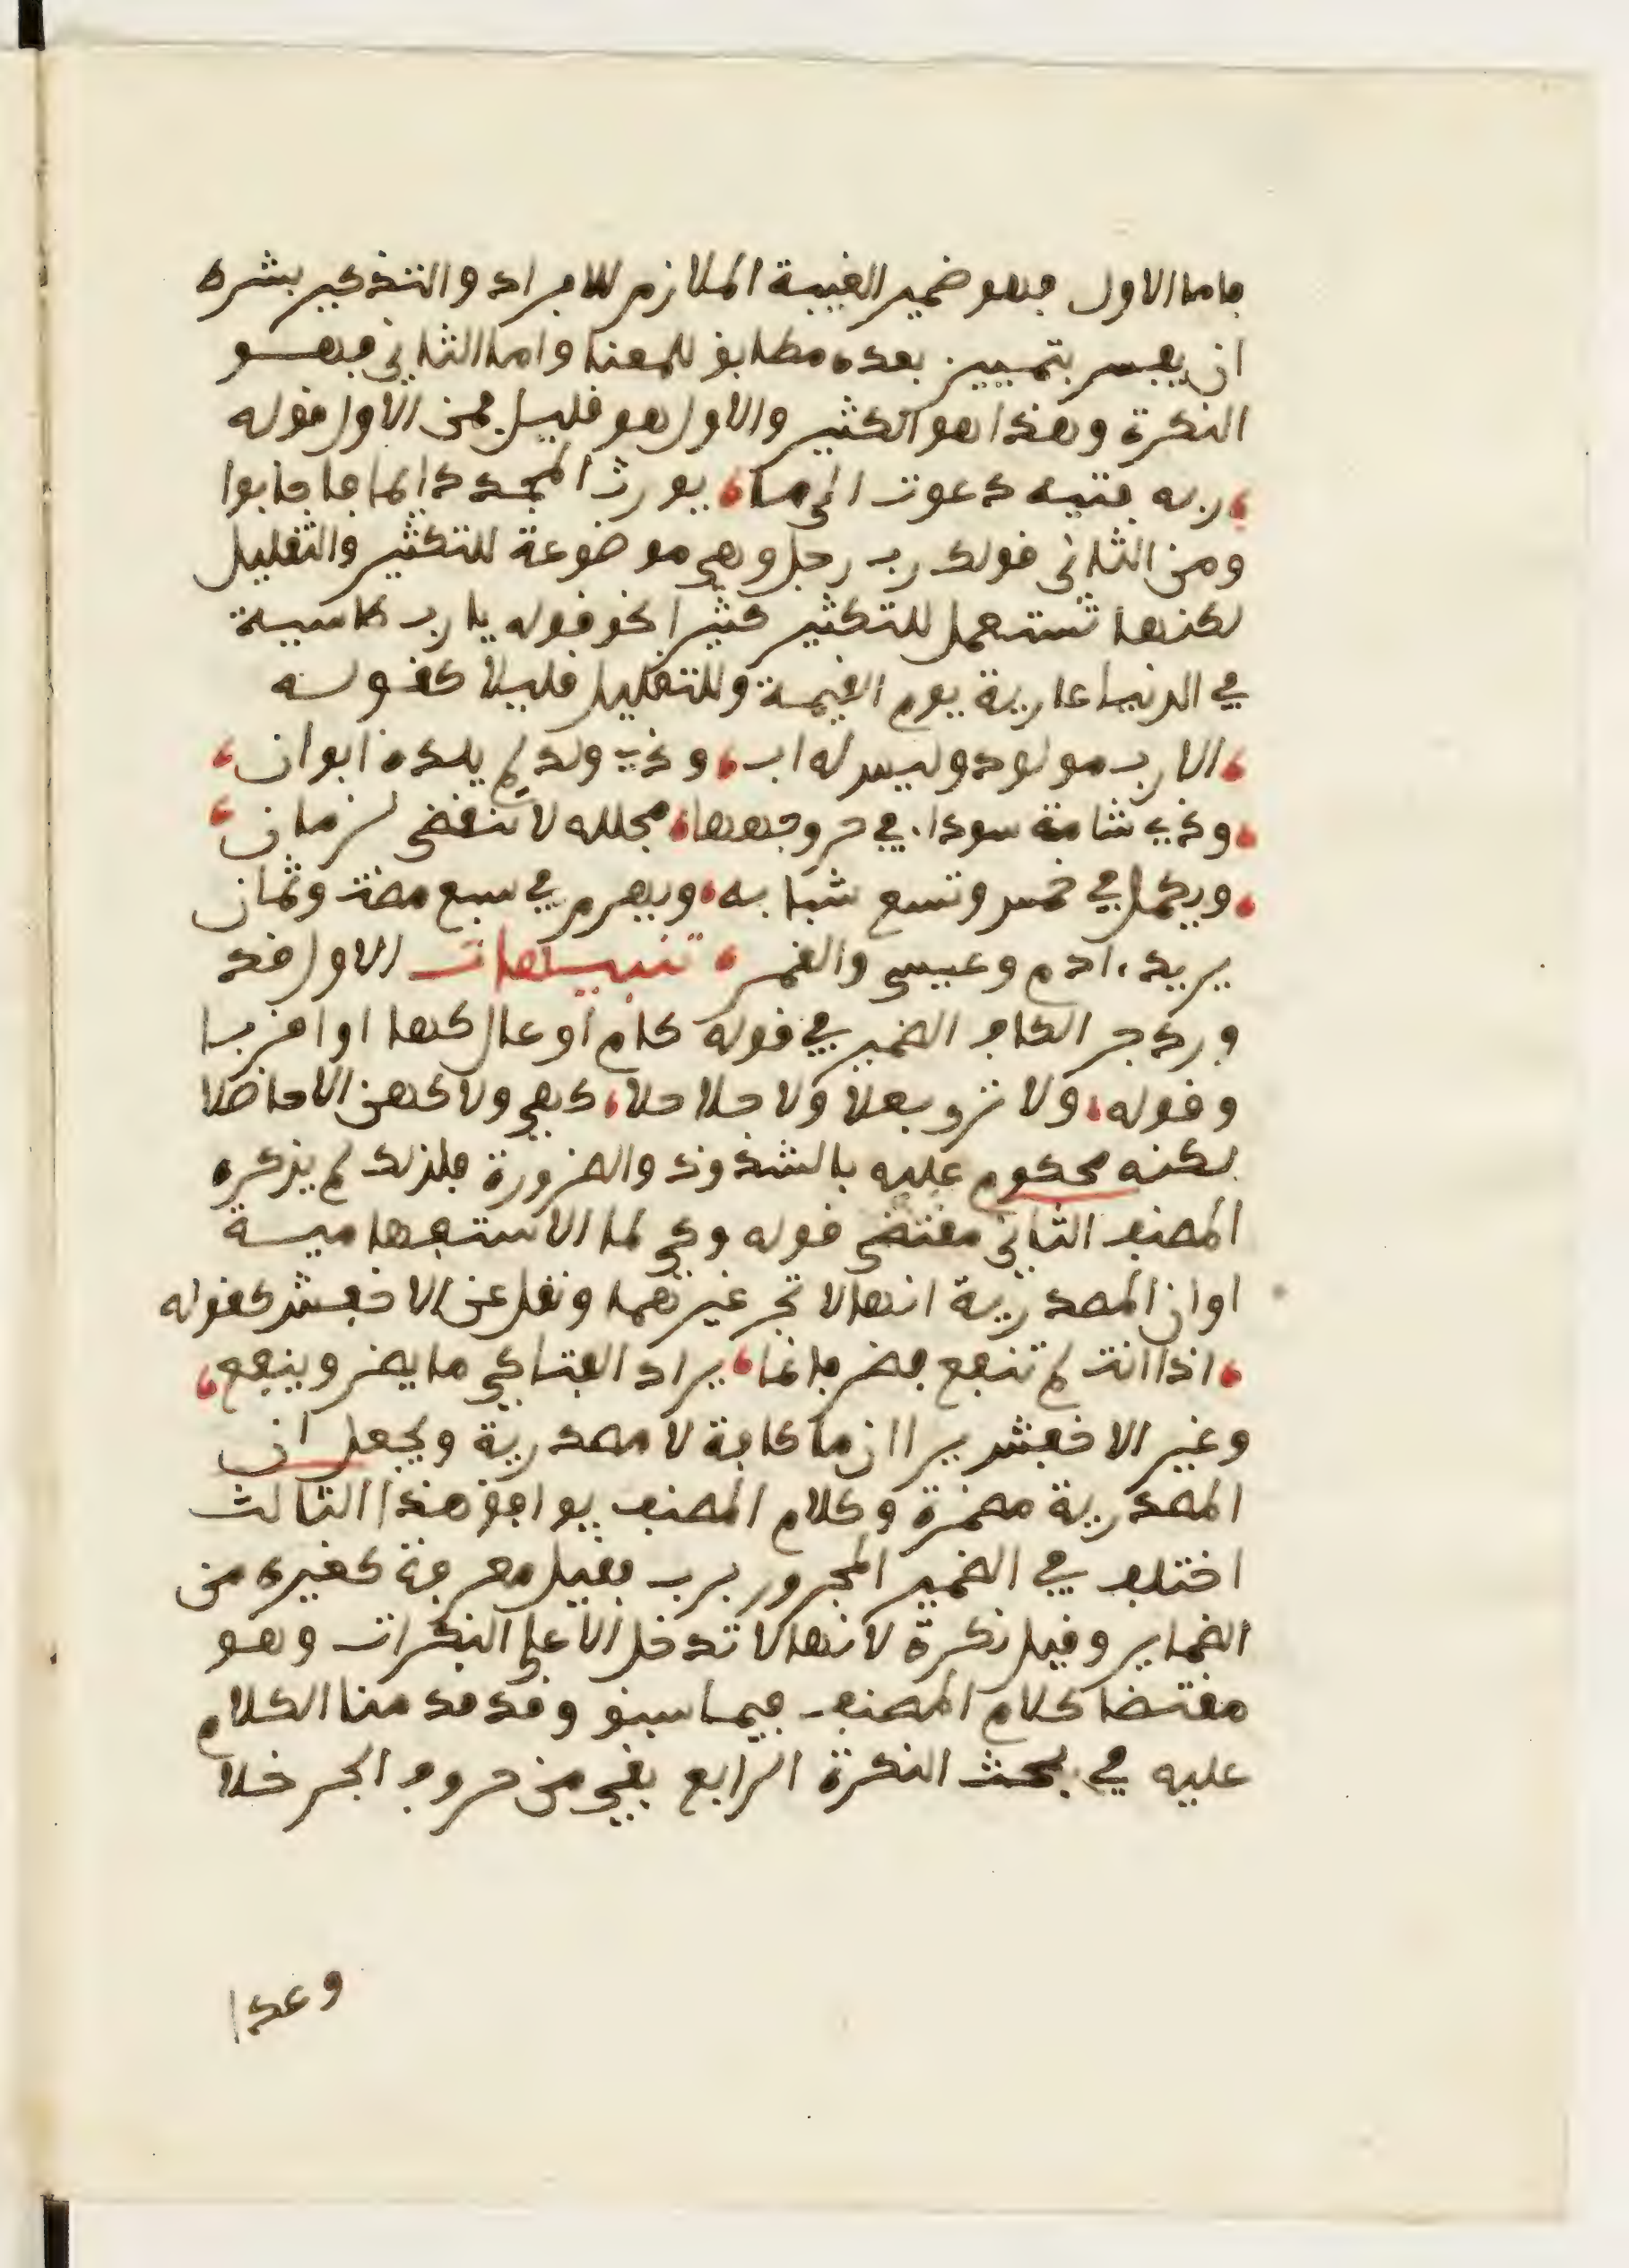 فاما الاول فهو ضمير الغيبة الملازم للافراد والتذكير بشره
ان يفسر بتمييز بعده مطابق للمعنا واما الثاني فهو
النكرة وهذا هو الكثير والاول هو قليل فمن الاول قوله
، ربه فتية دعوت الى ما ، يورث المجد دايما فاجابوا
ومن الثاني قولك رب رجل وهي موضوعة للتكثير والتقليل
لكنها تستعمل للتكثير كثيرا نحو قوله يا رب كاسية
في الدنيا عارية يوم القيمة وللتقليل قليلا كقوله
، الا رب مولود وليس له اب ، وذي ولد لم يلده ابوان ،
، وذي شامة سوداء في حر وجهها ، مجلله لا تنقضى لزمان ،
، ويكمل في خمس وتسع شبابه ، ويهرم في سبع مضت وثمان
يريد ءادم وعيسى والقمر ، تنبيهات الاول قد
ورد جر الكاف الضمير في قوله كام اوعال كها او اقربا
وقوله ، ولا ترو بعلا ولا حلاحلا ، كهي ولا كهن الا حاضلا
لكنه محكوم عليه بالشذوذ والضرورة فلذلك لم يذكره
المصنف الثاني مقتضى قوله وكي لما الاستفهامية
او ان المصدرية انها لا تجر غيرهما ونقل عن الاخفش كقوله
، اذا انت لم تنفع فضر فانما ، يراد الفتا كي ما يضر وينفع ،
وغير الاخفش يرا ان ما كافة لا مصدرية ويجعل ان
المصدرية مضمرة وكلام المصنف يوافق هذا الثالث
اختلف في الضمير المجرور برب فقيل معرفة كغيره من
الضماير وقيل نكرة لانها لا تدخل الا على النكرات وهو
مقتضا كلام المصنف فيما سبق وقد قدمنا الكلام
عليه في بحث النكرة الرابع بقي من حروف الجر خلا
وعدا